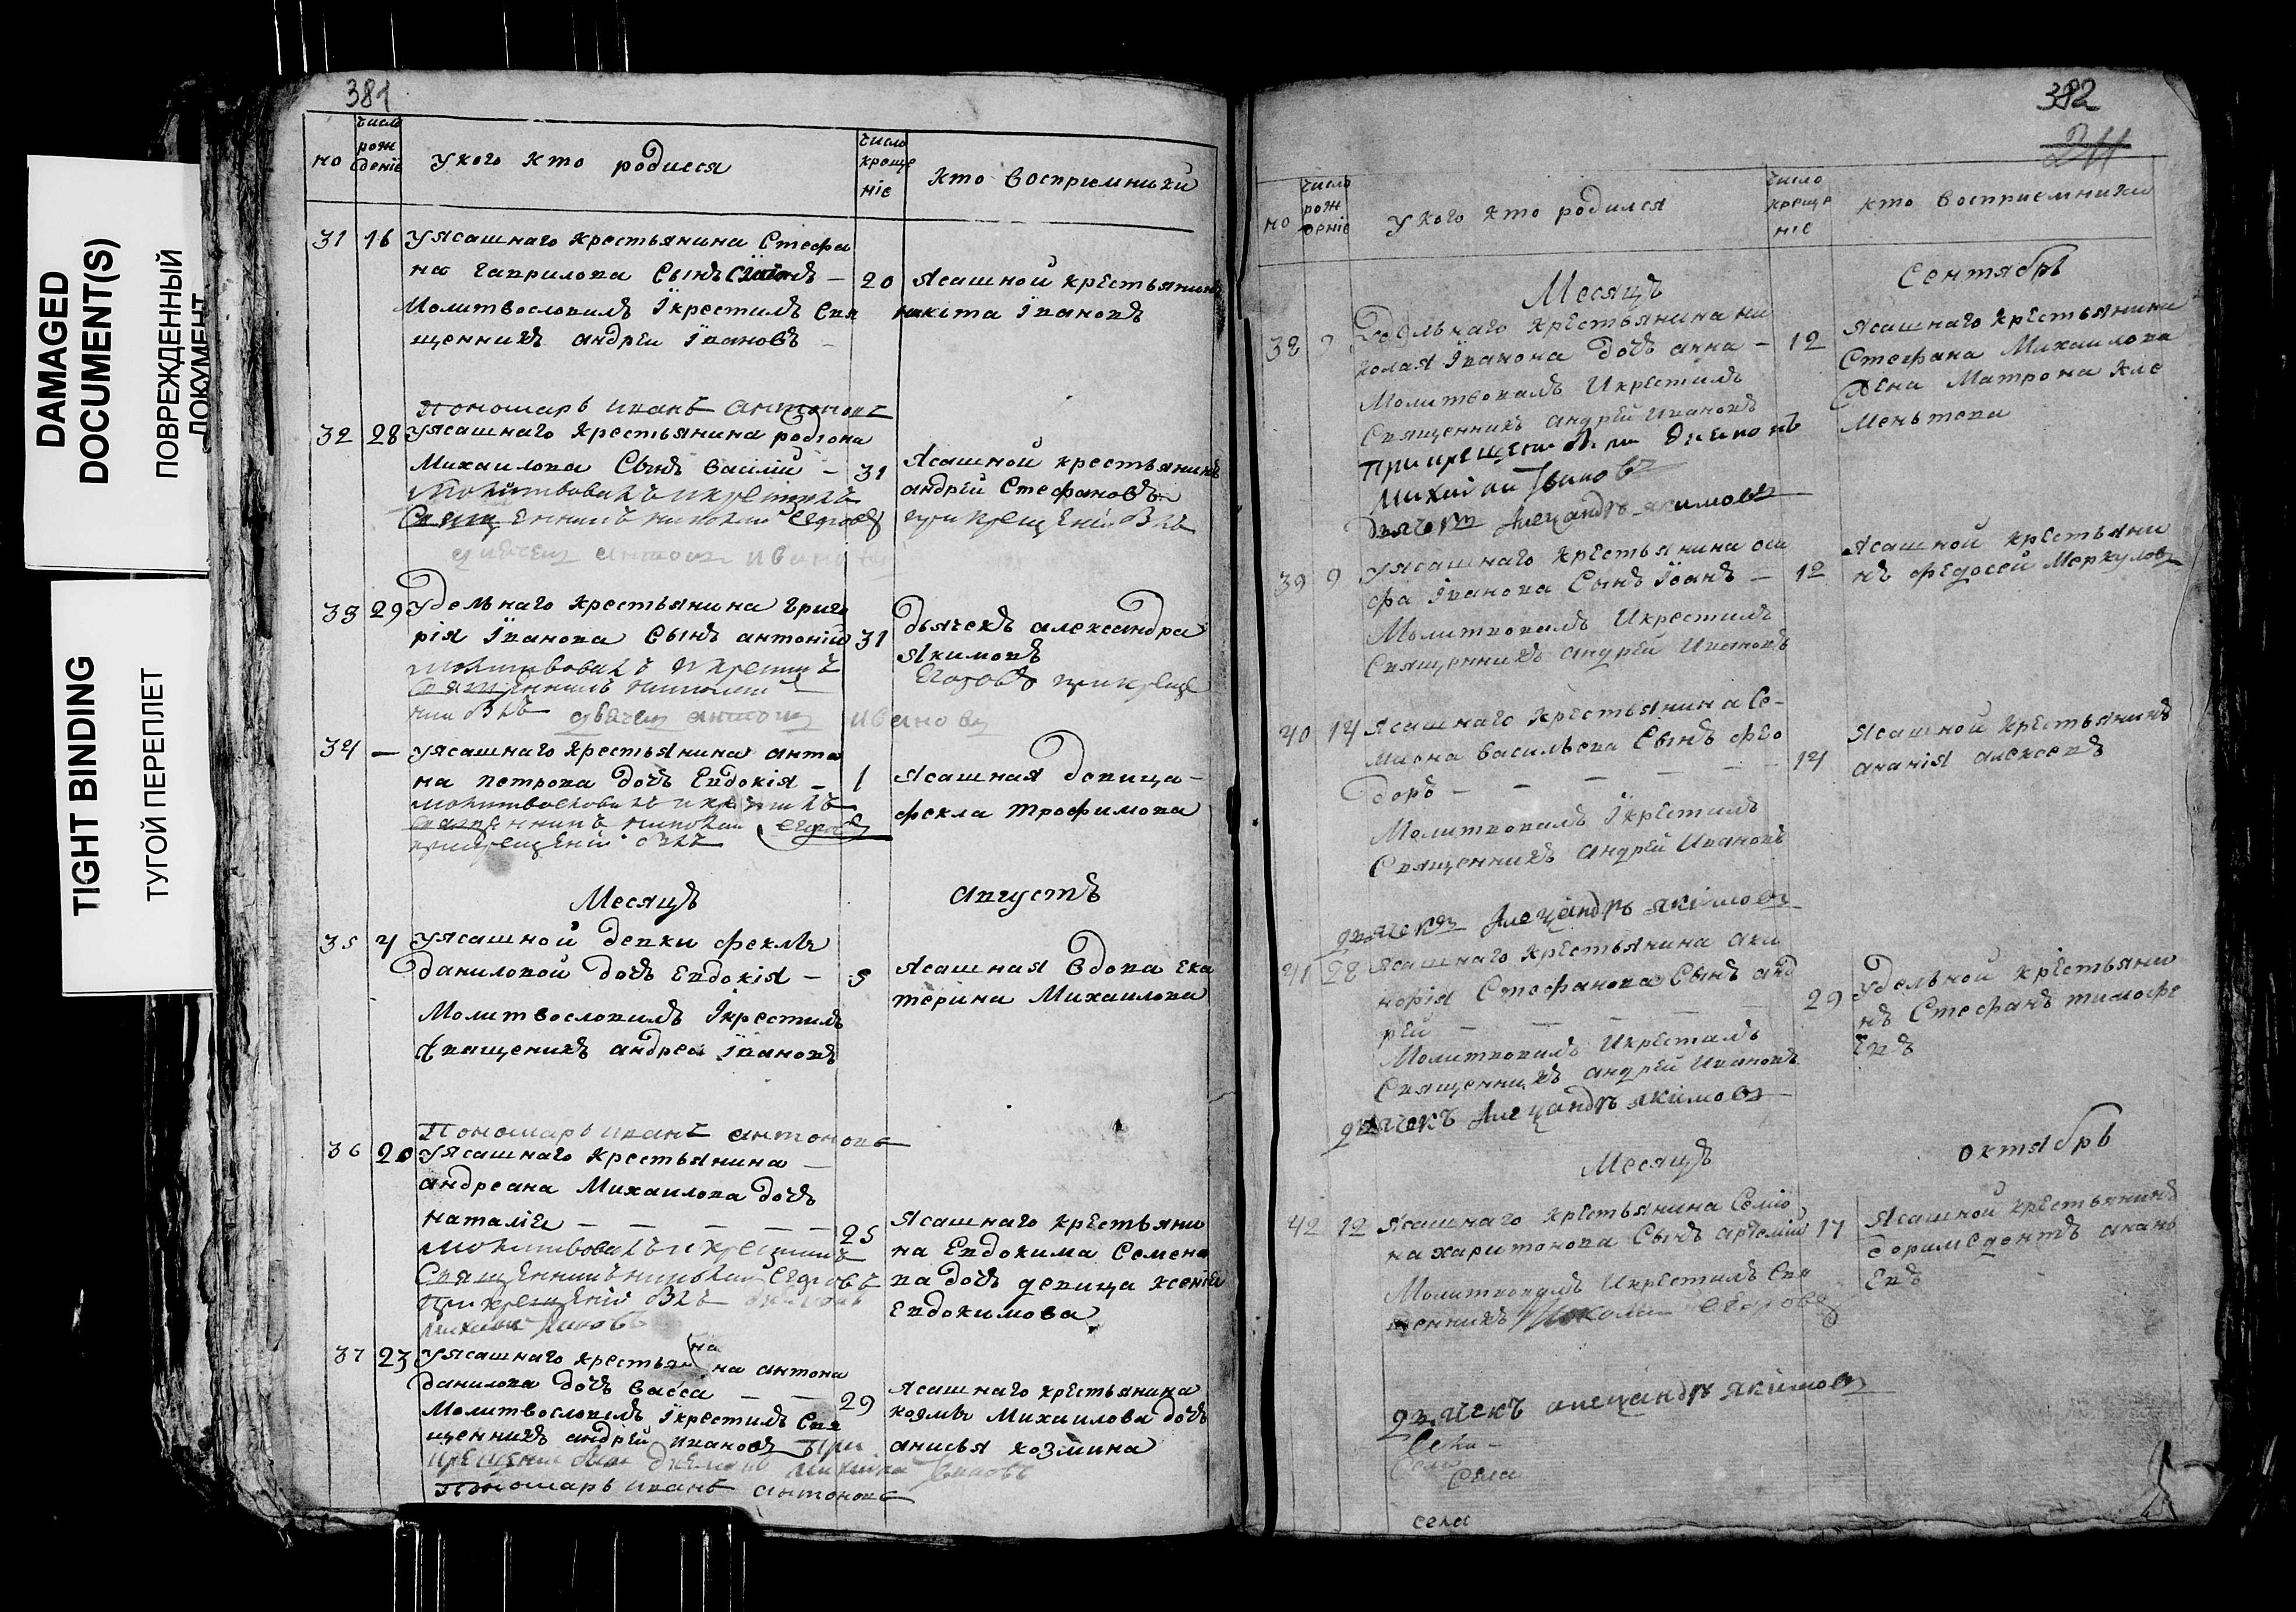 DAMAGED
DOCUMENT(S)
ПОВРЕЖДЕННЫЙ
ДОКУМЕНТ
TIGHT BINDING
ТУГОЙ ПЕРЕПЛЕТ
381
но
число рож деніе
У кого кто родился
число креще ніе
кто восприемники
31 16 У ясашнаго крестьянина Стефа
на Гаврилова сынъ
Молитвословилъ Ікрестилъ Свя
щенникъ андреи Івановъ
20 Ясашной крестьянинъ
никита Івановъ
пономарь иванъ антоновъ
32 28 У ясашнаго крестьянина родiона
Михаилова Сынъ василiй
молитвовалъ и крестилъ
Священникъ николай Егоровъ
31 Ясашной крестьянинъ
андрей Стефановъ
при крещенiи былъ
дьячекъ антонъ ивановъ
33 29 Удельнаго крестьянина григо
рiя Іванова сынъ антонiй
молитвовалъ и крестилъ
Священникъ николай
31 дьячекъ александра
Якимовъ
Егоровъ при креще
нии былъ дьячекъ антонъ ивановъ
34 — У ясашнаго крестьянина анто
на петрова дочь Евдокiя
Священникъ николай Егоровъ
при крещенiи былъ
1 Ясашная девица
фекла трофимова
Месяцъ Августъ
35 4 У ясашной девки феклы
даниловой дочь Евдокiя
Молитвословилъ Ікрестилъ
Священикъ андреи Івановъ
5 Ясашная вдова Ека
терина Михаилова
Пономарь иванъ антоновъ
36 20 У ясашнаго крестьянина
андреана Михаилова дочь
наталiя
молитвовалъ и крестилъ
Священникъ николай Егоровъ
При крещенiи былъ дьяконъ
михаилъ Ивановъ
25 Ясашнаго крестьяни
на Евдокима Семено
ва дочь девица ксенiя
Евдокимова
37 23 У ясашнаго крестьянина антона
данилова дочь васса
Молитвословилъ Ікрестилъ Свя
щенникъ андрей ивановъ При
крещении былъ дьяконъ михаилъ Ивановъ
Пономарь иванъ антоновъ
29 Ясашнаго крестьянина
козмы Михаилова дочь
анисья козмина
382
211
но
число рож деніе
У кого кто родился
число креще ніе
кто восприемники
Месяцъ Сентябрь
38 9 Удельнаго крестьянина ни
колая Іванова дочь анна
Молитвовалъ Икрестилъ
Священникъ андрей Ивановъ
При крещении былъ дьяконъ
михаилъ Ивановъ
дьячекъ Александръ якимовъ
12 Ясашнаго крестьянина
Стефана Михаилова
жена Матрона кле
ментева
39 9 У ясашнаго крестьянина оси
фа Іванова Сынъ Іоанъ
Молитвовалъ Икрестилъ
Священникъ андрей Ивановъ
12 Ясашной крестьяни
нъ федосей Меркуловъ
40 14 Ясашнаго крестьянина Се-
миона васильева Сынъ фео
доръ
Молитвовалъ Ікрестилъ
Священникъ андрей Ивановъ
14 Ясашной крестьянинъ
ананiя алексеевъ
дьячекъ Александръ якiмовъ
41 28 Ясашнаго крестьянина
Стефанова Сынъ анд
рей
Молитвовалъ Икрестилъ
Священникъ андрей Ивановъ
дьячекъ Александръ якимовъ
29 Удельной крестьяни
нъ Стефанъ тимофе
евъ
Месяцъ октябрь
42 12 Ясашнаго крестьянина Семио
на харитонова Сынъ артемiй
Молитвовалъ Икрестилъ Свя
щенникъ Николай Егоровъ
17 Ясашной крестьянинъ
евъ
дьячекъ александръ якiмовъ
села
села
села